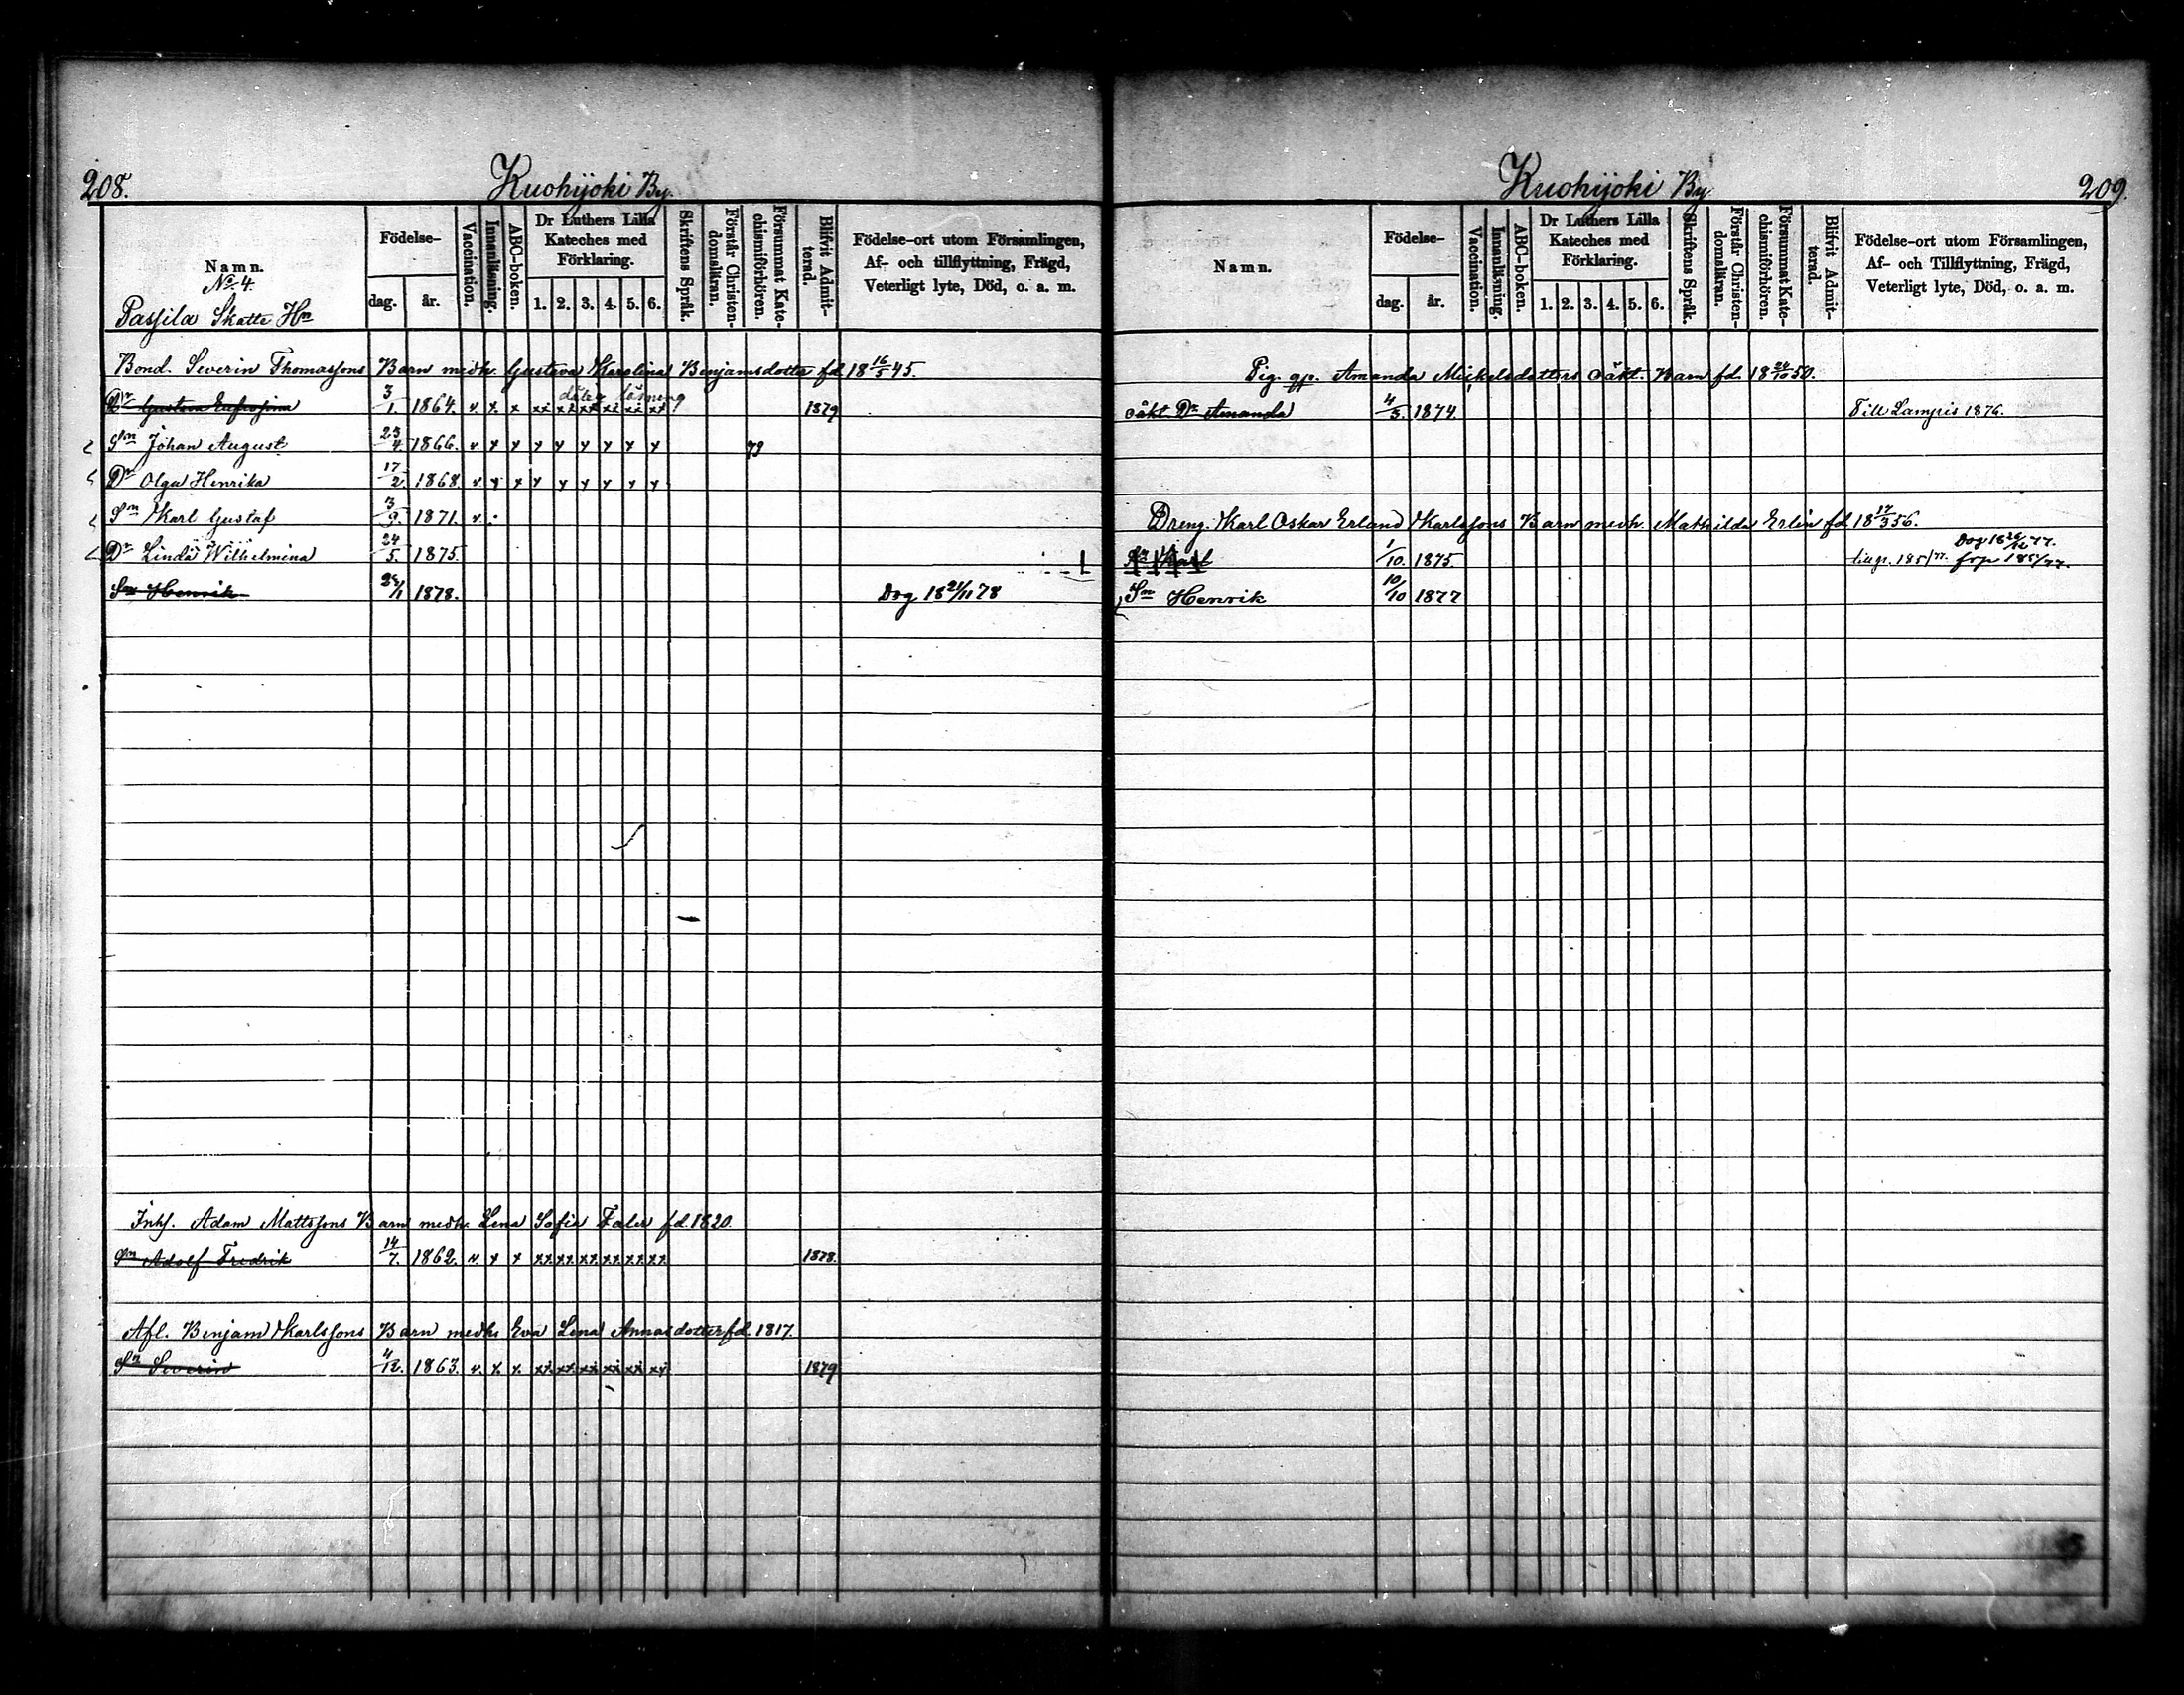 208.
Kuohijoki By.
Namn.
No. 4.
Passila Skatte Hn
Födelse-
dag.
år.
Vaccination.
Innanläsning.
ABC-boken.
Dr Luthers Lilla
Kateches med
Förklaring.
1. 2. 3. 4. 5. 6.
Skriftens Språk.
Förstår Christen-
domsläran.
Försummat Kate-
chismiförhören.
Blifvit Admit-
terad.
Födelse-ort utom Församlingen,
Af- och tillflyttning, Frägd,
Veterligt lyte, Död, o. a. m.
Bond. Severin Thomassons Barn medh. Gustava Karolina Benjamsdotter fd 18 16/5 45.
Dr Gustava Eufrosina 3/1. 1864. v. x x xx xx xx xx xx xx 1879
Sn Johan August 23/4. 1866. v. x x x x x x x x 79
Dr Olga Henrika 17/2. 1868. v. x x x x x x x x
Sn Karl Gustaf 3/9. 1871. v.
Dr Linda Wilhelmina 24/5. 1875.
Sn Henrik 1878. Dog 18 21/11 78
Inhs. Adam Mattssons Barn medh. Lena Sofia fd. 1820.
Sn Adolf Fredrik 14/7. 1862. v. x x xx xx xx xx xx xx 1878.
Afl. Benjam Karlssons Barn medh. Eva Lena Annasdotter fd. 1817.
Sn Severin 4/12. 1863. v. x. x. xx xx xx xx xx xx 1879
Kuohijoki By
209.
Namn.
Födelse-
dag.
år.
Vaccination.
Innanläsning.
ABC-boken.
Dr Luthers Lilla
Kateches med
Förklaring.
1. 2. 3. 4. 5. 6.
Skriftens Språk.
Förstår Christen-
domsläran.
Försummat Kate-
chismiförhören.
Blifvit Admit-
terad.
Födelse-ort utom Församlingen,
Af- och Tillflyttning, Frägd,
Veterligt lyte, Död, o. a. m.
Pig. qp. Amanda Mickelsdotters oäkt. Barn fd. 18 24/10 50.
oäkt. Dr Amanda 4/3. 1874. Till Lampis 1876.
Dreng. Karl Oskar Erland Karlssons Barn medh. Mathilda Erlin fd 18 17/3 56.
Sn Karl 1/10. 1875
Sn Henrik 10/10 1877